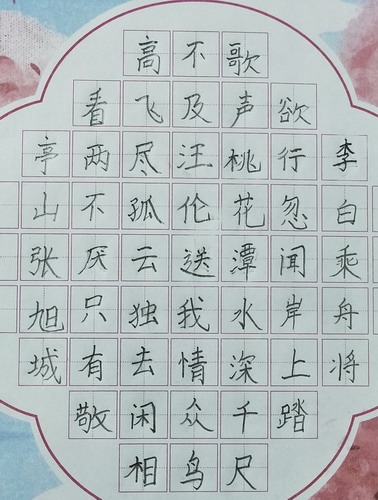 李白乘舟将
欲行忽闻岸上踏
歌声桃花潭水深千尺
不及汪伦送我情众鸟
高飞尽孤云独去闲相
看两不厌只有敬
亭山张旭城